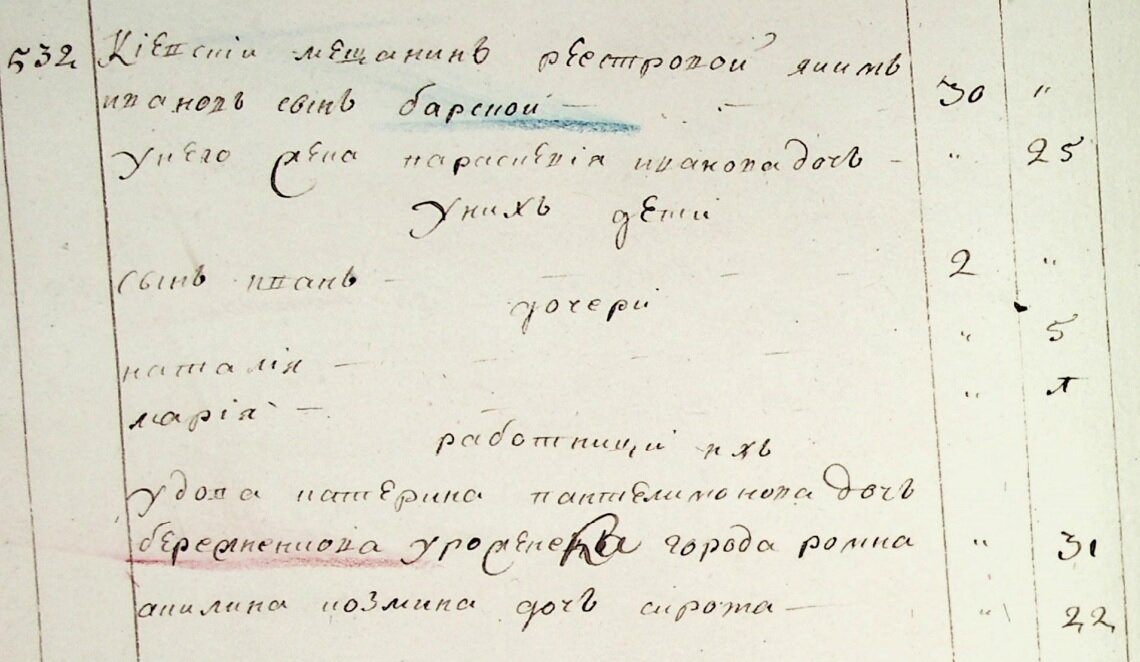 532 Кіевскіи мещанинъ реестровой якимъ
ивановъ сынъ барской — — 30 "
унего жена параскевія иванова дочъ — " 25
унихъ дети
сынъ иванъ — — — — 2 "
дочери
наталія — — — — " 5
марія — — — " л
работници ихъ
удова катерина пантелимонова дочъ
бережненкова уроженка города ромна " 31
акилина козмина дочъ сирота — " 22